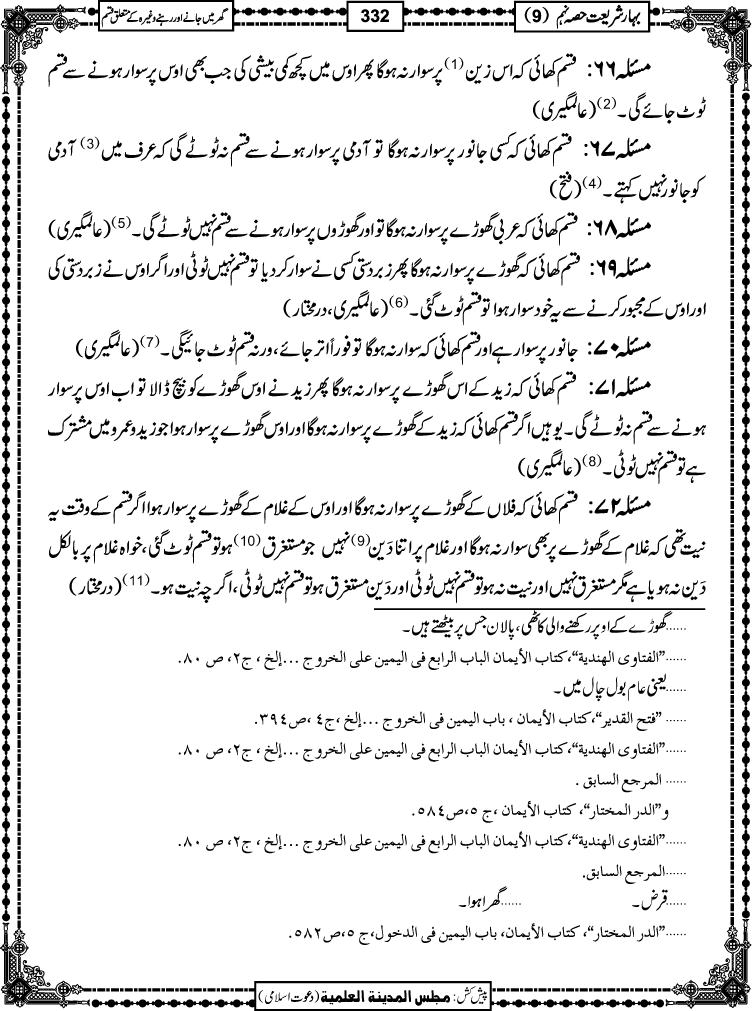 بہارِ شریعت حصہ نہم (9)
332
گھر میں جانے اور رہنے وغیرہ کے متعلق قسم
مسئلہ ۶۶: قسم کھائی کہ اس زین (1) پر سوار نہ ہوگا پھر اوس میں کچھ کمی بیشی کی جب بھی اوس پر سوار ہونے سے قسم
ٹوٹ جائے گی۔ (2) (عالمگیری)
مسئلہ ۶۷: قسم کھائی کہ کسی جانور پر سوار نہ ہوگا تو آدمی پر سوار ہونے سے قسم نہ ٹوٹے گی کہ عرف میں (3) آدمی
کو جانور نہیں کہتے۔ (4) (فتح)
مسئلہ ۶۸: قسم کھائی کہ عربی گھوڑے پر سوار نہ ہوگا تو اور گھوڑوں پر سوار ہونے سے قسم نہیں ٹوٹے گی۔ (5) (عالمگیری)
مسئلہ ۶۹: قسم کھائی کہ گھوڑے پر سوار نہ ہوگا پھر زبردستی کسی نے سوار کردیا تو قسم نہیں ٹوٹی اور اگر اوس نے زبردستی کی
اور اوس کے مجبور کرنے سے یہ خود سوار ہوا تو قسم ٹوٹ گئی۔ (6) (عالمگیری، درمختار)
مسئلہ ۷۰: جانور پر سوار ہے اور قسم کھائی کہ سوار نہ ہوگا تو فوراً اتر جائے، ورنہ قسم ٹوٹ جائیگی۔ (7) (عالمگیری)
مسئلہ ۷۱: قسم کھائی کہ زید کے اس گھوڑے پر سوار نہ ہوگا پھر زید نے اوس گھوڑے کو بیچ ڈالا تو اب اوس پر سوار
ہونے سے قسم نہ ٹوٹے گی۔ یوہیں اگر قسم کھائی کہ زید کے گھوڑے پر سوار نہ ہوگا اور اوس گھوڑے پر سوار ہوا جو زید و عمرو میں مشترک
ہے تو قسم نہیں ٹوٹی۔ (8) (عالمگیری)
مسئلہ ۷۲: قسم کھائی کہ فلاں کے گھوڑے پر سوار نہ ہوگا اور اوس کے غلام کے گھوڑے پر سوار ہوا اگر قسم کے وقت یہ
نیت تھی کہ غلام کے گھوڑے پر بھی سوار نہ ہوگا اور غلام پر اتنا دَین (9) نہیں جو مستغرق (10) ہو تو قسم ٹوٹ گئی، خواہ غلام پر بالکل
دَین نہ ہو یا ہے مگر مستغرق نہیں اور نیت نہ ہو تو قسم نہیں ٹوٹی اور دَین مستغرق ہو تو قسم نہیں ٹوٹی، اگرچہ نیت ہو۔ (11) (درمختار)
......گھوڑے کے اوپر رکھنے والی کاٹھی، پالان جس پر بیٹھتے ہیں۔
......"الفتاوی الھندیة"،کتاب الأیمان الباب الرابع فی الیمین علی الخروج ...إلخ ، ج۲، ص ۸۰.
......یعنی عام بول چال میں۔
...... "فتح القدیر"،کتاب الأیمان ، باب الیمین فی الخروج ...إلخ ،ج٤ ،ص٣٩٤.
......"الفتاوی الھندیة"،کتاب الأیمان الباب الرابع فی الیمین علی الخروج ...إلخ ، ج۲، ص ۸۰.
...... المرجع السابق .
و"الدر المختار"، کتاب الأیمان ،ج ٥،ص٥٨٤.
......"الفتاوی الھندیة"،کتاب الأیمان الباب الرابع فی الیمین علی الخروج ...إلخ ، ج۲، ص ۸۰.
......المرجع السابق.
......قرض۔ ......گھرا ہوا۔
......"الدر المختار"، کتاب الأیمان، باب الیمین فی الدخول،ج ٥،ص٥٨٢.
پیش کش: مجلس المدینة العلمیة (دعوت اسلامی)